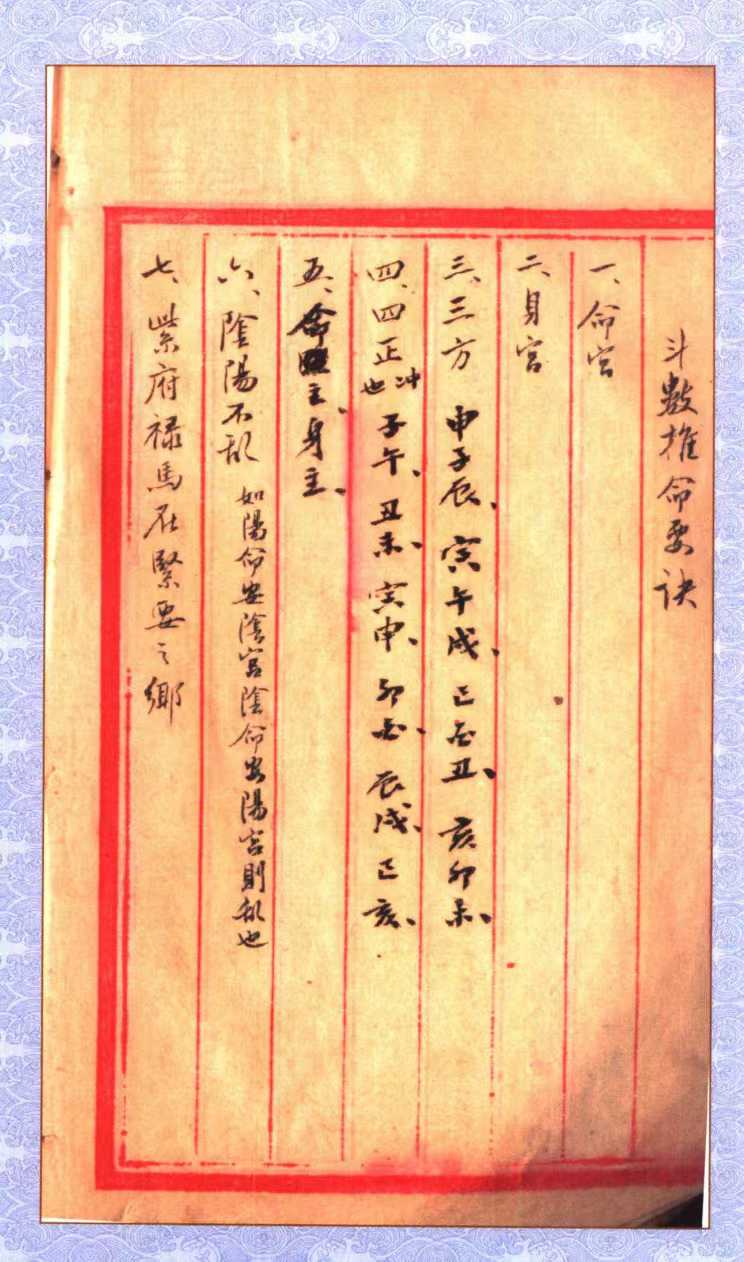 斗數推命要訣
一、命宫
二、身宫
三、三方 申子辰、寅午戌、巳酉丑、亥卯未、
四、四正冲也 子午、丑未、寅申、卯酉、辰戌、巳亥、
五、命主、身主、
六、陰陽不乱 如陽命安陰宫陰命安陽宫則乱也
七、紫府禄馬在緊要之鄉